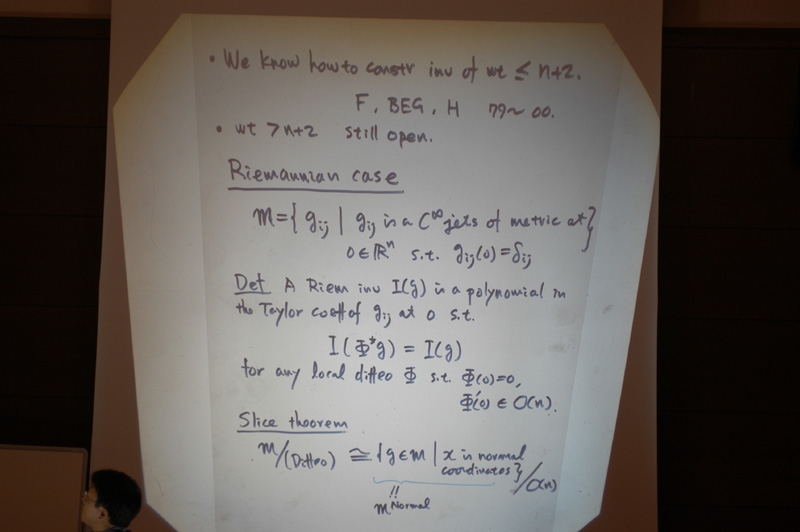 • We know how to constr inv of wt ≤ n+2.
F, BEG, H 79~00.
• wt > n+2 still open.
Riemannian case
M = { gij | gij is a C∞ jets of metric at }
0 ∈ ℝⁿ s.t. gij(0) = δij
Def A Riem inv I(g) is a polynomial in
the Taylor coeff of gij at 0 s.t.
I(Φ*g) = I(g)
for any local diffeo Φ s.t. Φ(0)=0,
Φ'(0) ∈ O(n).
Slice theorem
M/(Diffeo) ≅ {g ∈ M | x is normal
coordinates}/O(n)
||
M Normal